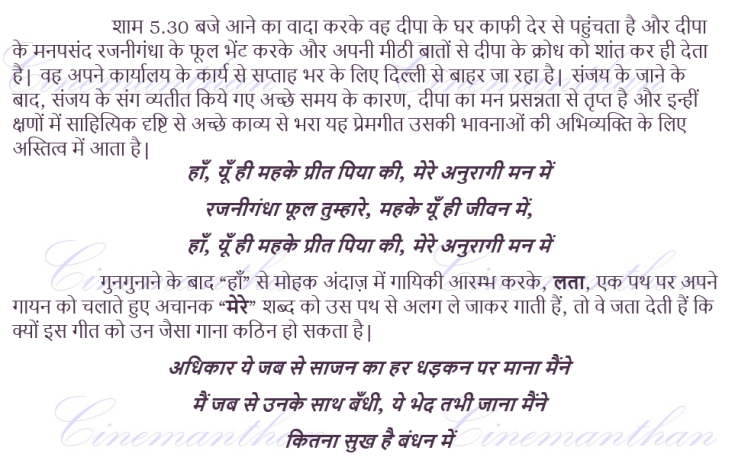 शाम 5.30 बजे आने का वादा करके वह दीपा के घर काफी देर से पहुंचता है और दीपा
के मनपसंद रजनीगंधा के फूल भेंट करके और अपनी मीठी बातों से दीपा के क्रोध को शांत कर ही देता
है| वह अपने कार्यालय के कार्य से सप्ताह भर के लिए दिल्ली से बाहर जा रहा है| संजय के जाने के
बाद, संजय के संग व्यतीत किये गए अच्छे समय के कारण, दीपा का मन प्रसन्नता से तृप्त है और इन्हीं
क्षणों में साहित्यिक दृष्टि से अच्छे काव्य से भरा यह प्रेमगीत उसकी भावनाओं की अभिव्यक्ति के लिए
अस्तित्व में आता है|
हाँ, यूँ ही महके प्रीत पिया की, मेरे अनुरागी मन में
रजनीगंधा फूल तुम्हारे, महके यूँ ही जीवन में,
हाँ, यूँ ही महके प्रीत पिया की, मेरे अनुरागी मन में
गुनगुनाने के बाद “हाँ” से मोहक अंदाज़ में गायिकी आरम्भ करके, लता, एक पथ पर अपने
गायन को चलाते हुए अचानक “मेरे” शब्द को उस पथ से अलग ले जाकर गाती हैं, तो वे जता देती हैं कि
क्यों इस गीत को उन जैसा गाना कठिन हो सकता है|
अधिकार ये जब से साजन का हर धड़कन पर माना मैंने
मैं जब से उनके साथ बँधी, ये भेद तभी जाना मैंने
कितना सुख है बंधन में
Cinemanthan